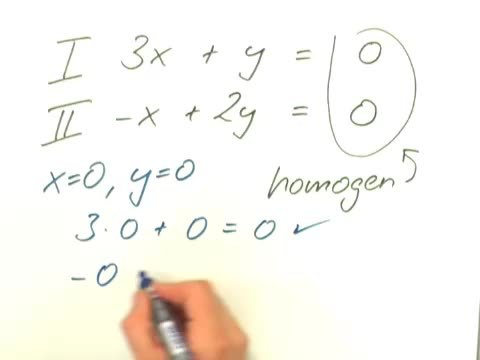 I 3x + y = 0
II -x + 2y = 0
homogen
x=0, y=0
3·0 + 0 = 0 ✓
-0